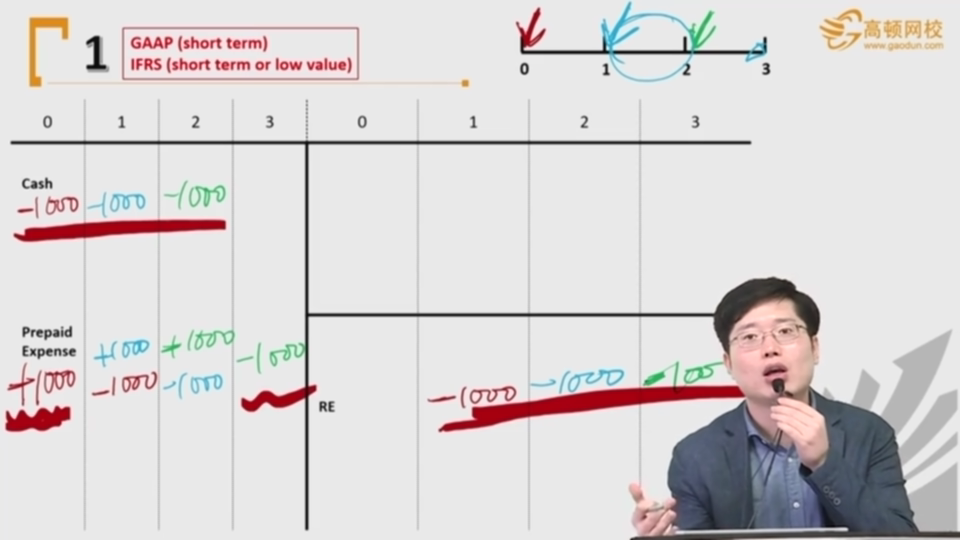 1
GAAP (short term)
IFRS (short term or low value)
0 1 2 3
高顿网校
www.gaodun.com
0 1 2 3 0 1 2 3
Cash
-1000 -1000 -1000
Prepaid
Expense
+1000 +1000
+1000 -1000 -1000 -1000
RE
-1000 -1000 -100